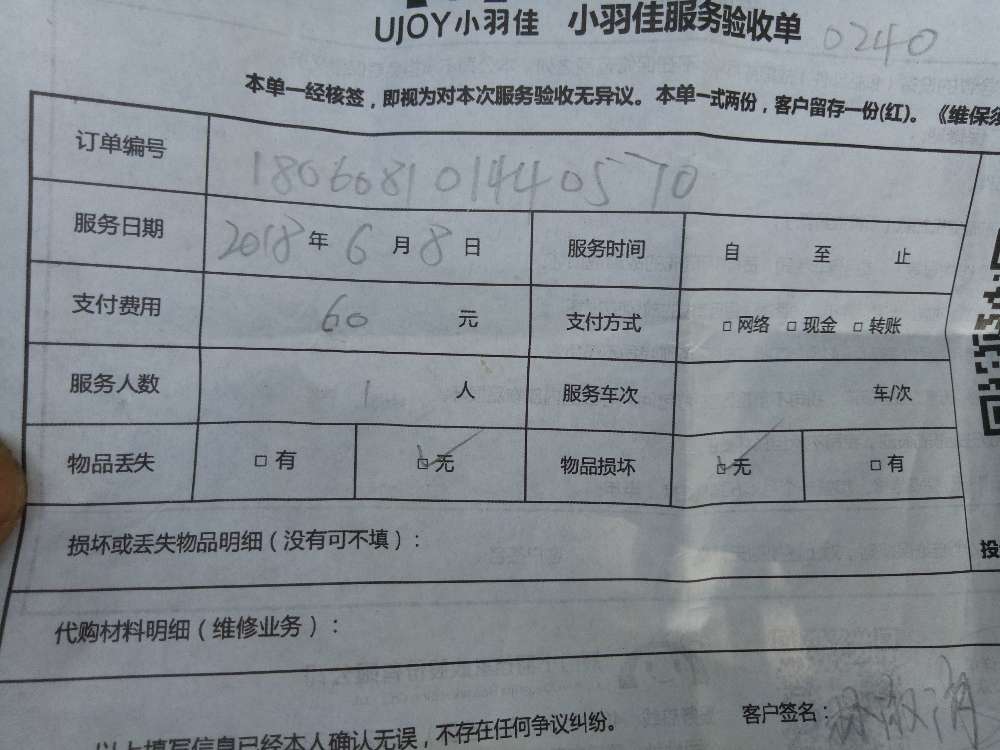 UJOY小羽佳 小羽佳服务验收单 0240
本单一经核签，即视为对本次服务验收无异议。本单一式两份，客户留存一份(红)。《维保须
订单编号 18060810144405710
服务日期 2018年6月8日 服务时间 自 至 止
支付费用 60 元 支付方式 □网络 □现金 □转账
服务人数 1 人 服务车次 车/次
物品丢失 □有 ☑无 物品损坏 ☑无 □有
损坏或丢失物品明细（没有可不填）：
投
代购材料明细（维修业务）：
客户签名：
以上填写信息已经本人确认无误，不存在任何争议纠纷。